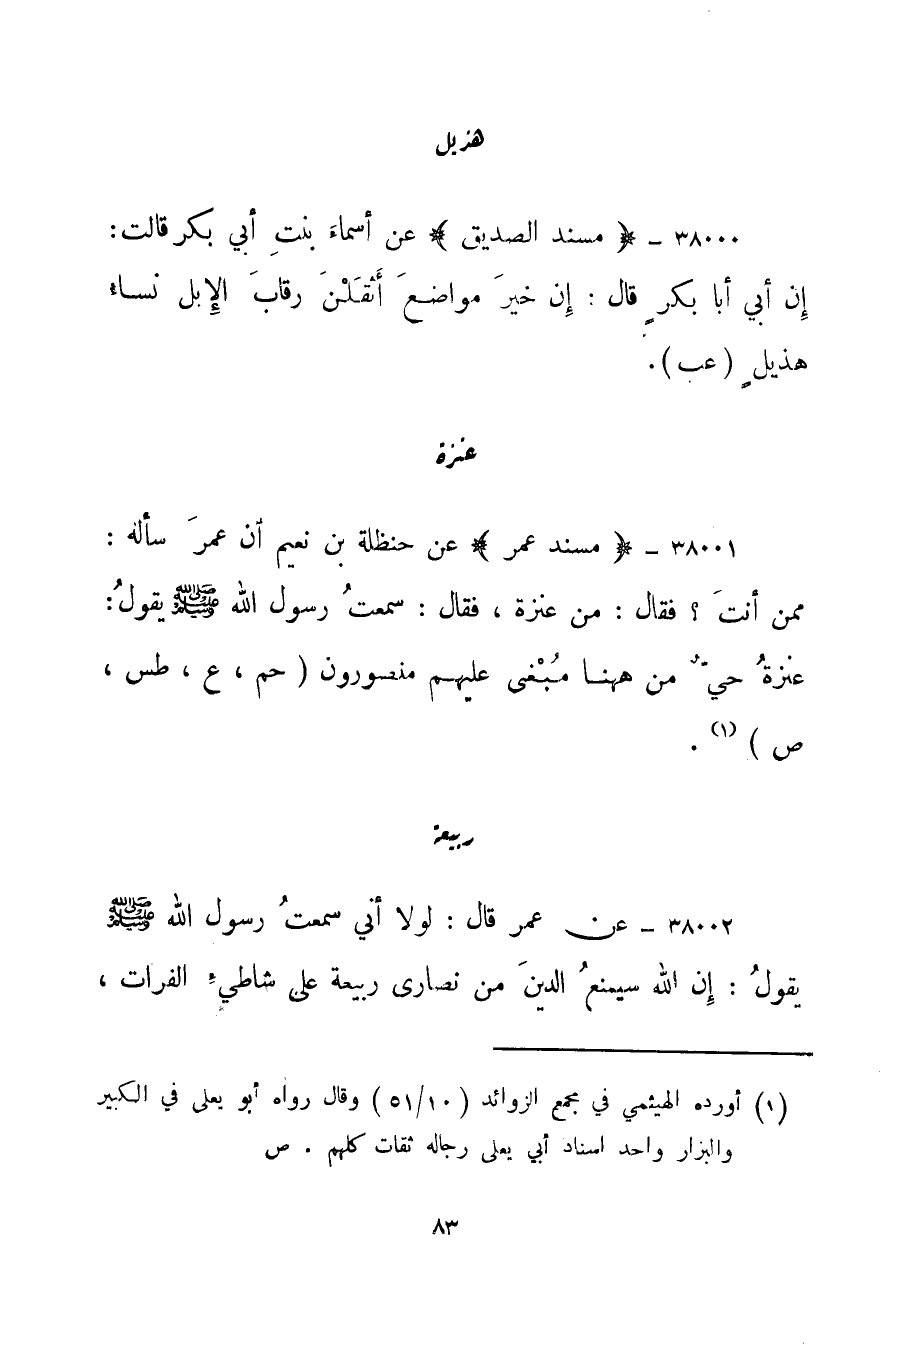 هذيل
٣٨٠٠٠ ـ ﴿ مسند الصديق ﴾ عن أسماءَ بنتِ أبي بكر قالت:
إن أبي أبا بكرٍ قال : إن خيرَ مواضعَ أَثقَلْنَ رقابَ الإِبل نساء
هذيلٍ ( عب ).
عنزة
٣٨٠٠١ ـ ﴿ مسند عمر ﴾ عن حنظلة بن نعيم أن عمرَ سأله :
ممن أنتَ ؟ فقال : من عنزة ، فقال : سمعتُ رسول الله ﷺ يقولُ:
عنزةُ حيٌّ من ههنا مُبْغى عليهم منصورون ( حم ، ع ، طس ،
ص ) (١) .
ربيعة
٣٨٠٠٢ ـ عن عمر قال : لولا أني سمعتُ رسول الله ﷺ
يقولُ : إن الله سيمنعُ الدينَ من نصارى ربيعة على شاطيء الفرات ،
(١) أورده الهيثمي في مجمع الزوائد ( ٥١/١٠ ) وقال رواه أبو يعلى في الكبير
والبزار واحد اسناد أبي يعلى رجاله ثقات كلهم . ص
٨٣